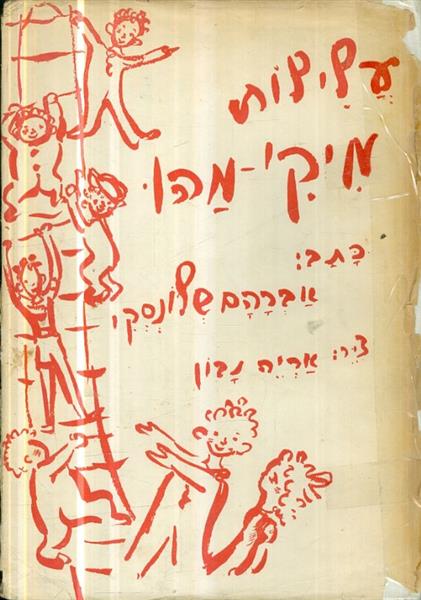 עֲלִילוֹת
מִיקִי-מַהוּ
כָּתַב:
אַבְרָהָם שְׁלוֹנְסְקִי
צִיֵּר: אַרְיֵה נָבוֹן